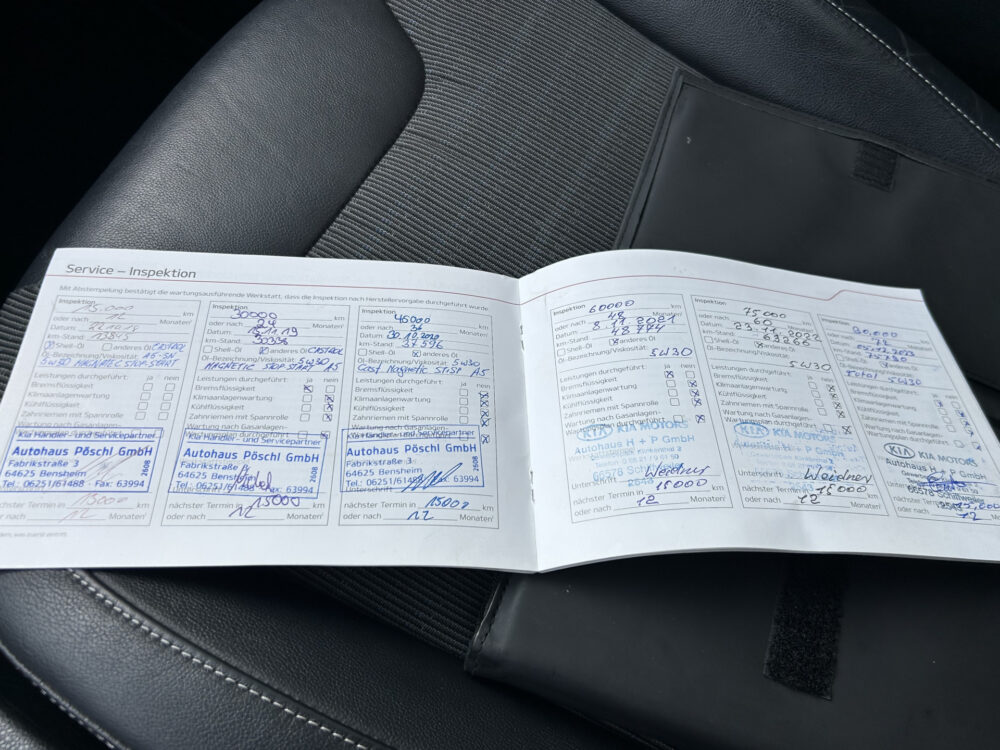 Service – Inspektion
Mit Abstempelung bestätigt die wartungsausführende Werkstatt, dass die Inspektion nach Herstellervorgabe durchgeführt wurde
Inspektion 15.000 km
oder nach 12 Monaten
Datum
km-Stand:
Shell-Öl anderes Öl CASTROL
Öl-Bezeichnung/Viskosität: A5-SN
5W30 MAGNATEC STOP-START
Leistungen durchgeführt: ja nein
Bremsflüssigkeit
Klimaanlagenwartung
Kühlflüssigkeit
Zahnriemen mit Spannrolle
Kia Händler und Servicepartner
Autohaus Pöschl GmbH
Fabrikstraße 3
64625 Bensheim
Tel.: 06251/61488 · Fax: 63994
2608
nächster Termin in 15000
oder nach 12 Monaten
Inspektion 30000 km
oder nach 24 Monaten
Datum 15.11.19
km-Stand: 30336
Shell-Öl anderes Öl CASTROL
Öl-Bezeichnung/Viskosität: 5W30
MAGNETIC STOP START A5
Leistungen durchgeführt: ja nein
Bremsflüssigkeit
Klimaanlagenwartung
Kühlflüssigkeit
Zahnriemen mit Spannrolle
Wartung nach Gasanlagen-
Kia Händler und Servicepartner
Autohaus Pöschl GmbH
Fabrikstraße 3
64625 Bensheim
Tel.: 06251/61488 · Fax: 63994
2608
nächster Termin in 15000
oder nach 12 Monaten
Inspektion 45000 km
oder nach 36 Monaten
Datum 30.12.2020
km-Stand:
Shell-Öl anderes Öl
Öl-Bezeichnung/Viskosität: 5W30
Cast. Magnetic STSP A5
Leistungen durchgeführt: ja nein
Bremsflüssigkeit
Klimaanlagenwartung
Kühlflüssigkeit
Zahnriemen mit Spannrolle
Wartung nach Gasanlagen-
Kia Händler und Servicepartner
Autohaus Pöschl GmbH
Fabrikstraße 3
64625 Bensheim
Tel.: 06251/61488 Fax: 63994
2608
Unterschrift
nächster Termin in 15000 km
oder nach 12 Monaten
Inspektion 60000 km
oder nach 48 Monaten
Datum 8.11.2021
km-Stand: 48774
Shell-Öl anderes Öl
Öl-Bezeichnung/Viskosität:
5W30
Leistungen durchgeführt: ja nein
Bremsflüssigkeit
Klimaanlagenwartung
Kühlflüssigkeit
Zahnriemen mit Spannrolle
Wartung nach Gasanlagen-
KIA KIA MOTORS
Autohaus H + P GmbH
Unterschrift Weidner
nächster Termin in 15000 km
oder nach 12 Monaten
Inspektion 75000 km
oder nach 60 Monaten
Datum 23.11.2022
km-Stand: 63266
Shell-Öl anderes Öl
Öl-Bezeichnung/Viskosität:
5W30
Leistungen durchgeführt: ja nein
Bremsflüssigkeit
Klimaanlagenwartung
Kühlflüssigkeit
Zahnriemen mit Spannrolle
Wartung nach Gasanlagen-
KIA KIA MOTORS
Unterschrift Weidner
nächster Termin in 15000 km
oder nach 12 Monaten
Inspektion 90.000 km
oder nach 72 Monaten
Datum
km-Stand:
Total 5W30
Leistungen durchgeführt: ja nein
Bremsflüssigkeit
Klimaanlagenwartung
Kühlflüssigkeit
Zahnriemen mit Spannrolle
Wartung nach Gasanlagen-
KIA KIA MOTORS
Autohaus H + P GmbH
nächster Termin in
oder nach 12 Monaten